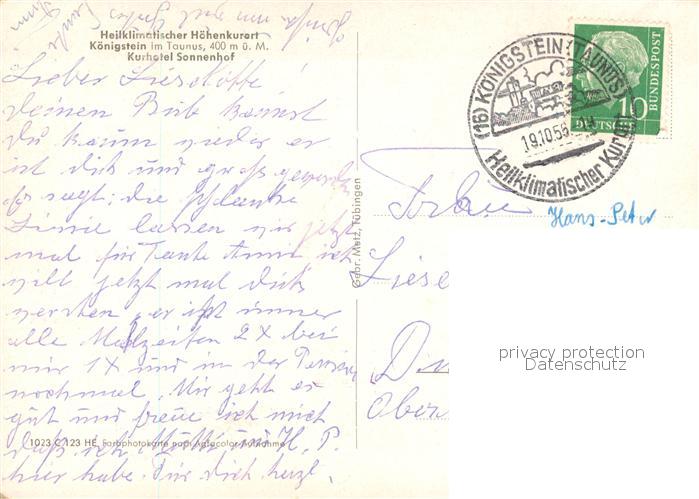 Heilklimatischer Höhenkurort
Königstein im Taunus, 400 m ü. M.
Kurhotel Sonnenhof
Lieber Lieselotte!
Deinen Bub kennst
Du kaum wieder er
ist dick und groß geworden
Er sagt: die schlanke
Linie lassen wir jetzt
mal für Tante Anni, ich
will jetzt mal dick
werden, er ißt immer
alle Mahlzeiten 2 x bei
mir 1 x und in der Pension
nochmal. Mir geht es
gut und freue ich mich
daß ich Mutti und H. P.
hier habe. Für dich herzl.
1023 C 123 HE Farbphotokarte nach Agfacolor-Aufnahme
Gebr. Metz, Tübingen
(16) KÖNIGSTEIN (TAUNUS)
19.10.56
Heilklimatischer Kurort
10
DEUTSCHE
BUNDESPOST
Frau
Hans-Peter
Liese
D
Ober
privacy protection
Datenschutz